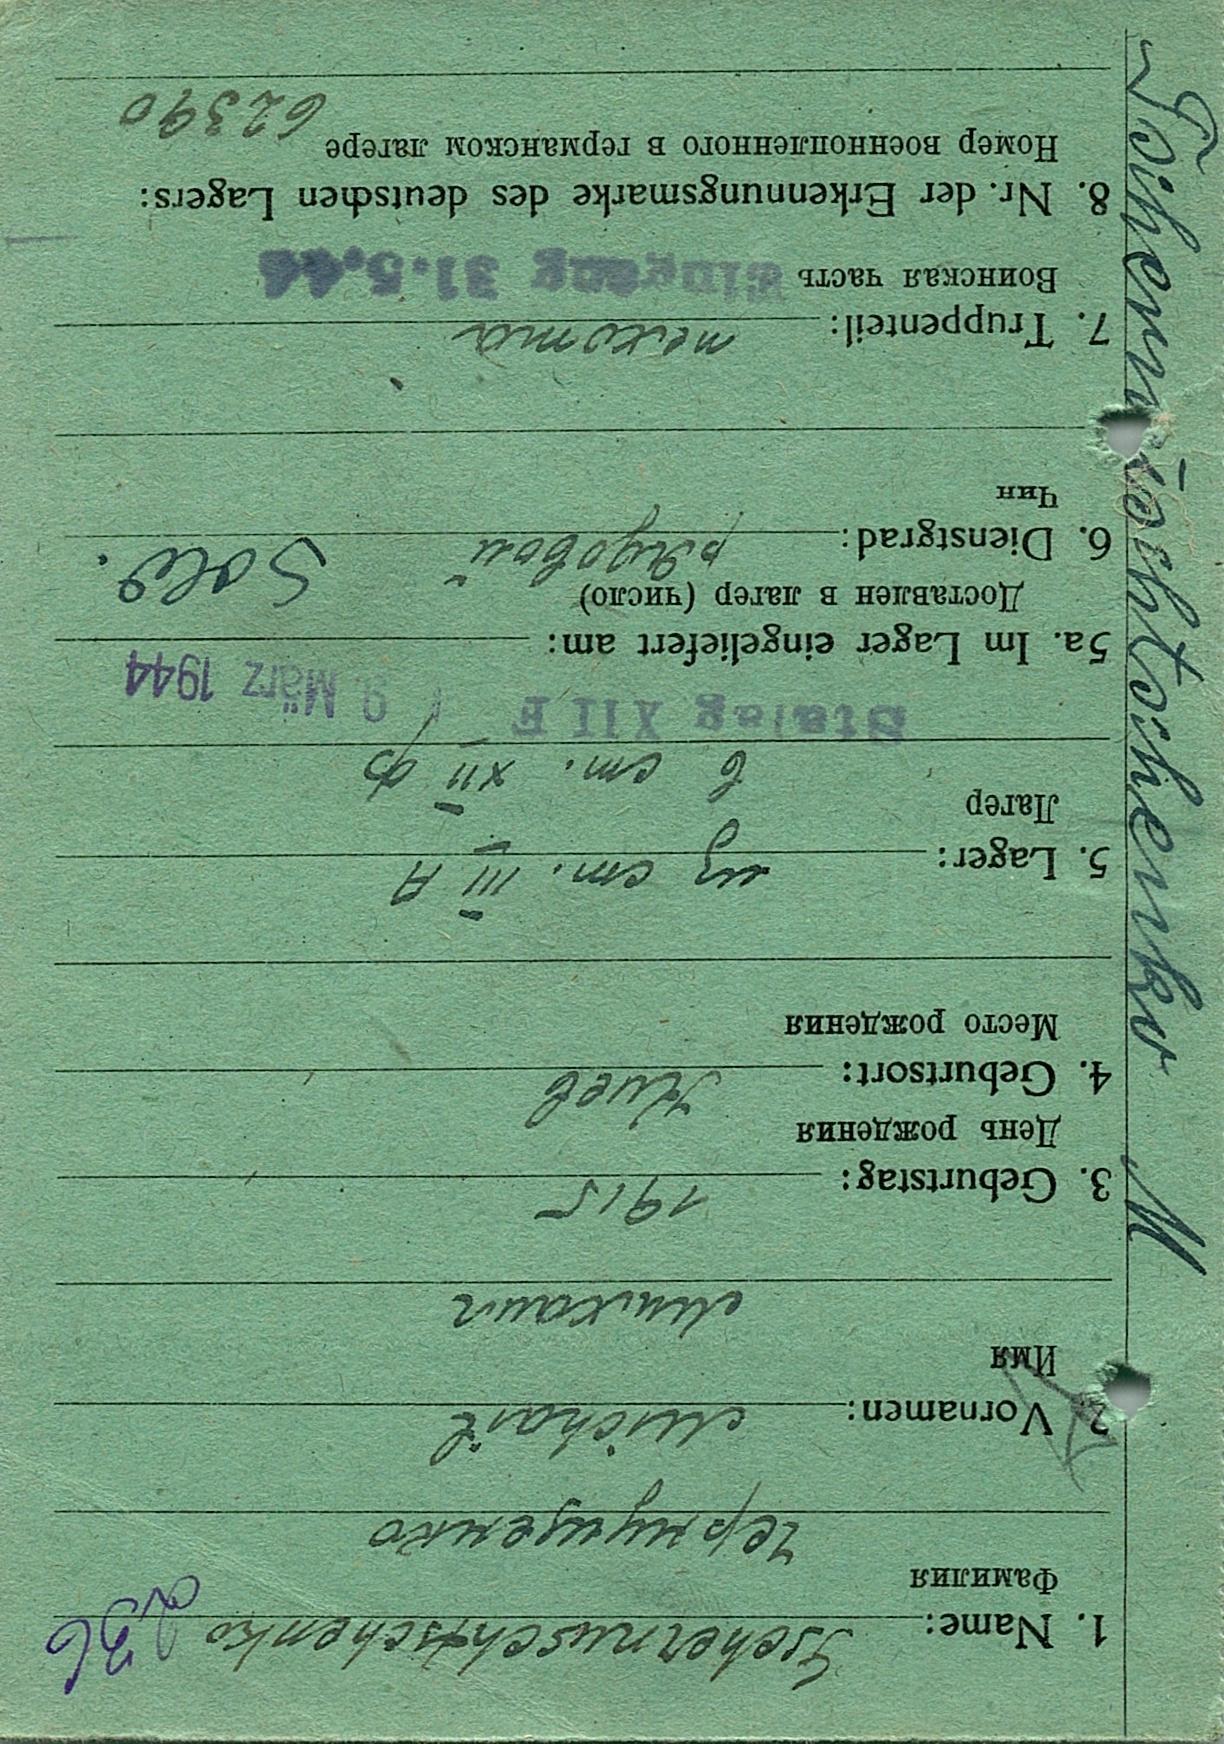 1. Name: Tschernuschtschenko
236
Фамилия
Чернущенко
2. Vornamen: Michail
Имя
Михаил
3. Geburtstag: 1915
День рождения
4. Geburtsort: Киев
Место рождения
5. Lager: из ст. III A
Лагер
в ст. XII ф
Stalag XII F 9. März 1944
5a. Im Lager eingeliefert am:
Доставлен в лагер (число)
6. Dienstgrad: рядовой Sold.
Чин
7. Truppenteil: пехота
Воинская часть Eingang 31.5.44
8. Nr. der Erkennungsmarke des deutschen Lagers:
Номер военнопленного в германском лагере
62390
Tschernuschtschenko M